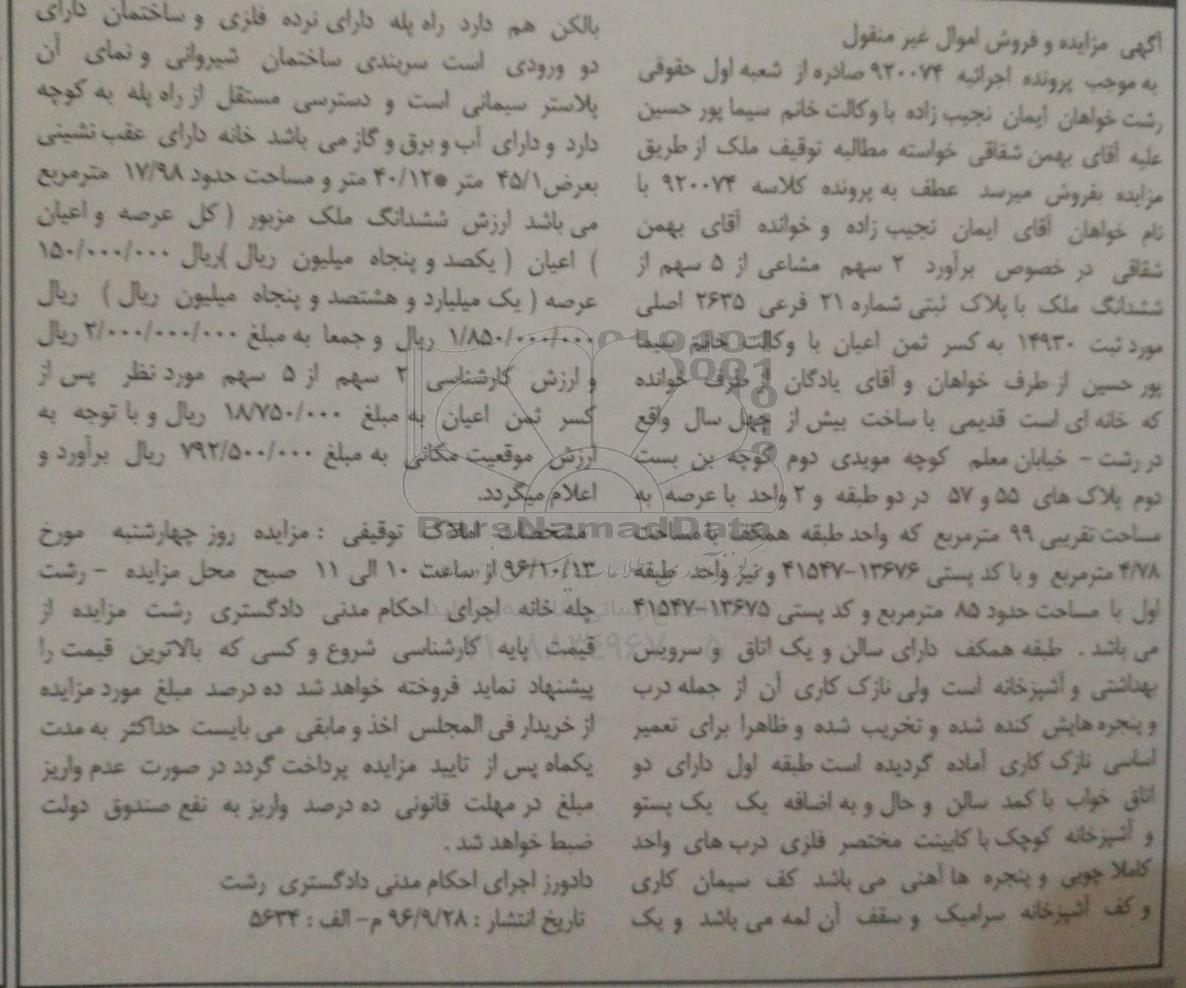 آگهی مزایده و فروش اموال غیر منقول
به موجب پرونده اجرائیه ۹۲۰۰۷۴ صادره از شعبه اول حقوقی
رشت خواهان ایمان نجیب زاده با وکالت خانم سیما پور حسین
علیه آقای بهمن شفاقی خواسته مطالبه توقیف ملک از طریق
مزایده بفروش میرسد عطف به پرونده کلاسه ۹۲۰۰۷۴ با
نام خواهان آقای ایمان نجیب زاده و خوانده آقای بهمن
شقاقی در خصوص برآورد ۲ سهم مشاعی از ۵ سهم از
ششدانگ ملک با پلاک ثبتی شماره ۲۱ فرعی ۲۶۳۵ اصلی
مورد ثبت ۱۴۹۳۰ به کسر ثمن اعیان با وکالت خانم سیما
پور حسین از طرف خواهان و آقای یادگان از طرف خوانده
که خانه ای است قدیمی با ساخت بیش از چهل سال واقع
در رشت - خیابان معلم کوچه مویدی دوم کوچه بن بست
دوم پلاک های ۵۵ و ۵۷ در دو طبقه و ۲ واحد با عرصه به
مساحت تقریبی ۹۹ مترمربع که واحد طبقه همکف با مساحت
۴/۷۸ مترمربع و با کد پستی ۱۳۶۷۶-۴۱۵۴۷ و نیز واحد طبقه
اول با مساحت حدود ۸۵ مترمربع و کد پستی ۱۳۶۷۵-۴۱۵۴۷
می باشد . طبقه همکف دارای سالن و یک اتاق و سرویس
بهداشتی و آشپزخانه است ولی نازک کاری آن از جمله درب
و پنجره هایش کنده شده و تخریب شده و ظاهرا برای تعمیر
اساسی نازک کاری آماده گردیده است طبقه اول دارای دو
اتاق خواب با کمد سالن و حال و به اضافه یک یک پستو
و آشپزخانه کوچک با کابینت مختصر فلزی درب های واحد
کاملا چوبی و پنجره ها آهنی می باشد کف سیمان کاری
و کف آشپزخانه سرامیک و سقف آن لمه می باشد و یک
بالکن هم دارد راه پله دارای نرده فلزی و ساختمان دارای
دو ورودی است سربندی ساختمان شیروانی و نمای آن
پلاستر سیمانی است و دسترسی مستقل از راه پله به کوچه
دارد و دارای آب و برق و گاز می باشد خانه دارای عقب نشینی
بعرض ۴۵/۱ متر *۴۰/۱۲ متر و مساحت حدود ۱۷/۹۸ مترمربع
می باشد ارزش ششدانگ ملک مزبور ( کل عرصه و اعیان
) اعیان ( یکصد و پنجاه میلیون ریال )ریال ۱۵۰/۰۰۰/۰۰۰
عرصه ( یک میلیارد و هشتصد و پنجاه میلیون ریال ) ریال
۱/۸۵۰/۰۰۰/۰۰۰ ریال و جمعا به مبلغ ۲/۰۰۰/۰۰۰/۰۰۰ ریال
و ارزش کارشناسی ۲ سهم از ۵ سهم مورد نظر پس از
کسر ثمن اعیان به مبلغ ۱۸/۷۵۰/۰۰۰ ریال و با توجه به
ارزش موقعیت مکانی به مبلغ ۷۹۲/۵۰۰/۰۰۰ ریال برآورد و
اعلام میگردد.
مشخصات املاک توقیفی : مزایده روز چهارشنبه مورخ
۹۶/۱۰/۱۳ از ساعت ۱۰ الی ۱۱ صبح محل مزایده - رشت
چله خانه اجرای احکام مدنی دادگستری رشت مزایده از
قیمت پایه کارشناسی شروع و کسی که بالاترین قیمت را
پیشنهاد نماید فروخته خواهد شد ده درصد مبلغ مورد مزایده
از خریدار فی المجلس اخذ و مابقی می بایست حداکثر به مدت
یکماه پس از تایید مزایده پرداخت گردد در صورت عدم واریز
مبلغ در مهلت قانونی ده درصد واریز به نفع صندوق دولت
ضبط خواهد شد .
دادورز اجرای احکام مدنی دادگستری رشت
تاریخ انتشار : ۹۶/۹/۲۸ م- الف : ۵۶۳۴
ParsNamadData